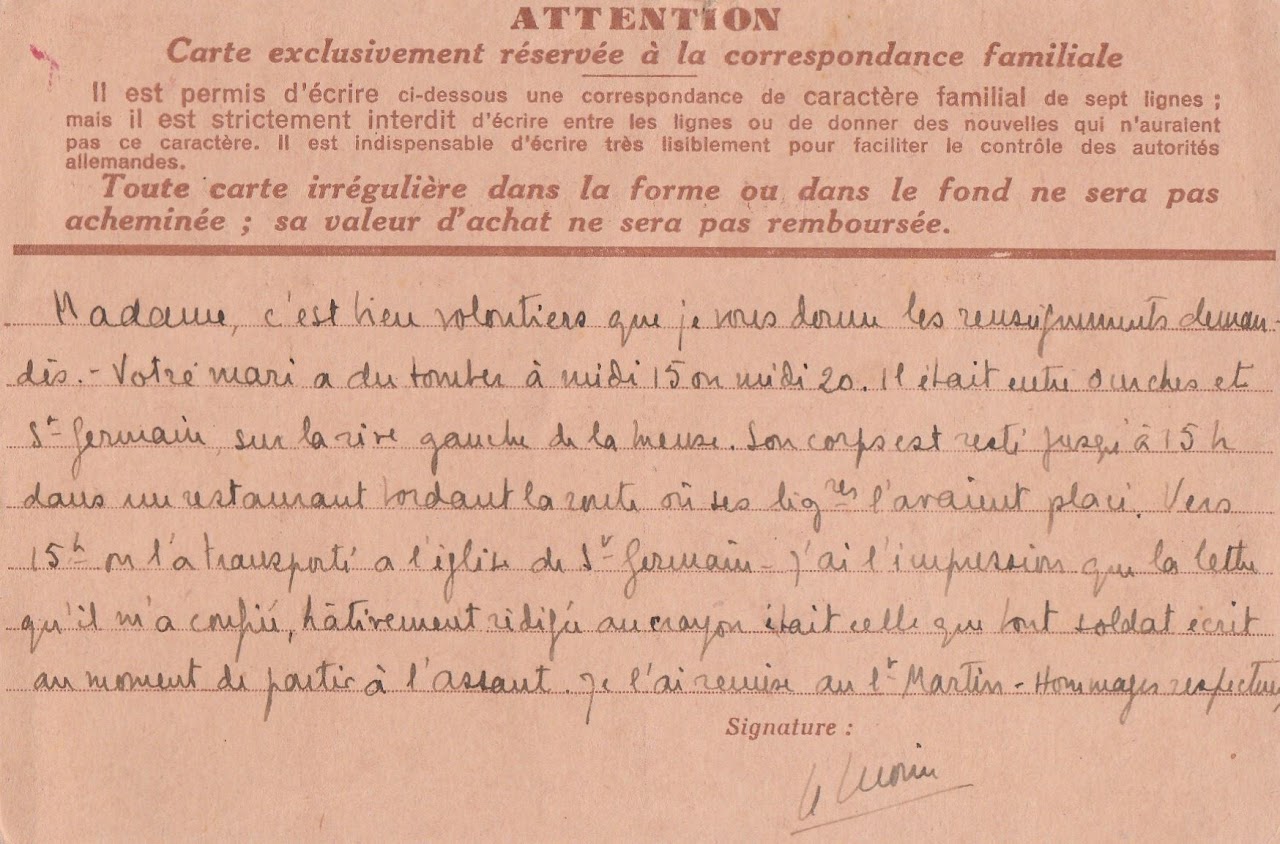 ATTENTION
Carte exclusivement réservée à la correspondance familiale
Il est permis d'écrire ci-dessous une correspondance de caractère familial de sept lignes ;
mais il est strictement interdit d'écrire entre les lignes ou de donner des nouvelles qui n'auraient
pas ce caractère. Il est indispensable d'écrire très lisiblement pour faciliter le contrôle des autorités
allemandes.
Toute carte irrégulière dans la forme ou dans le fond ne sera pas
acheminée ; sa valeur d'achat ne sera pas remboursée.
Madame, c'est bien volontiers que je vous donne les renseignements deman-
dés. - Votre mari a du tomber à midi 15 ou midi 20. Il était entre Ourches et
St Germain, sur la rive gauche de la Meuse. Son corps est resté jusqu'à 15 h
dans un restaurant bordant la route où ses lig res l'avaient placé. Vers
15 h on l'a transporté a l'église de St Germain - J'ai l'impression que la lettre
qu'il m'a confiée, hâtivement rédigée au crayon était celle que tout soldat écrit
au moment de partir à l'assaut. Je l'ai remise au Lt Martin - Hommages respectueux
Signature :